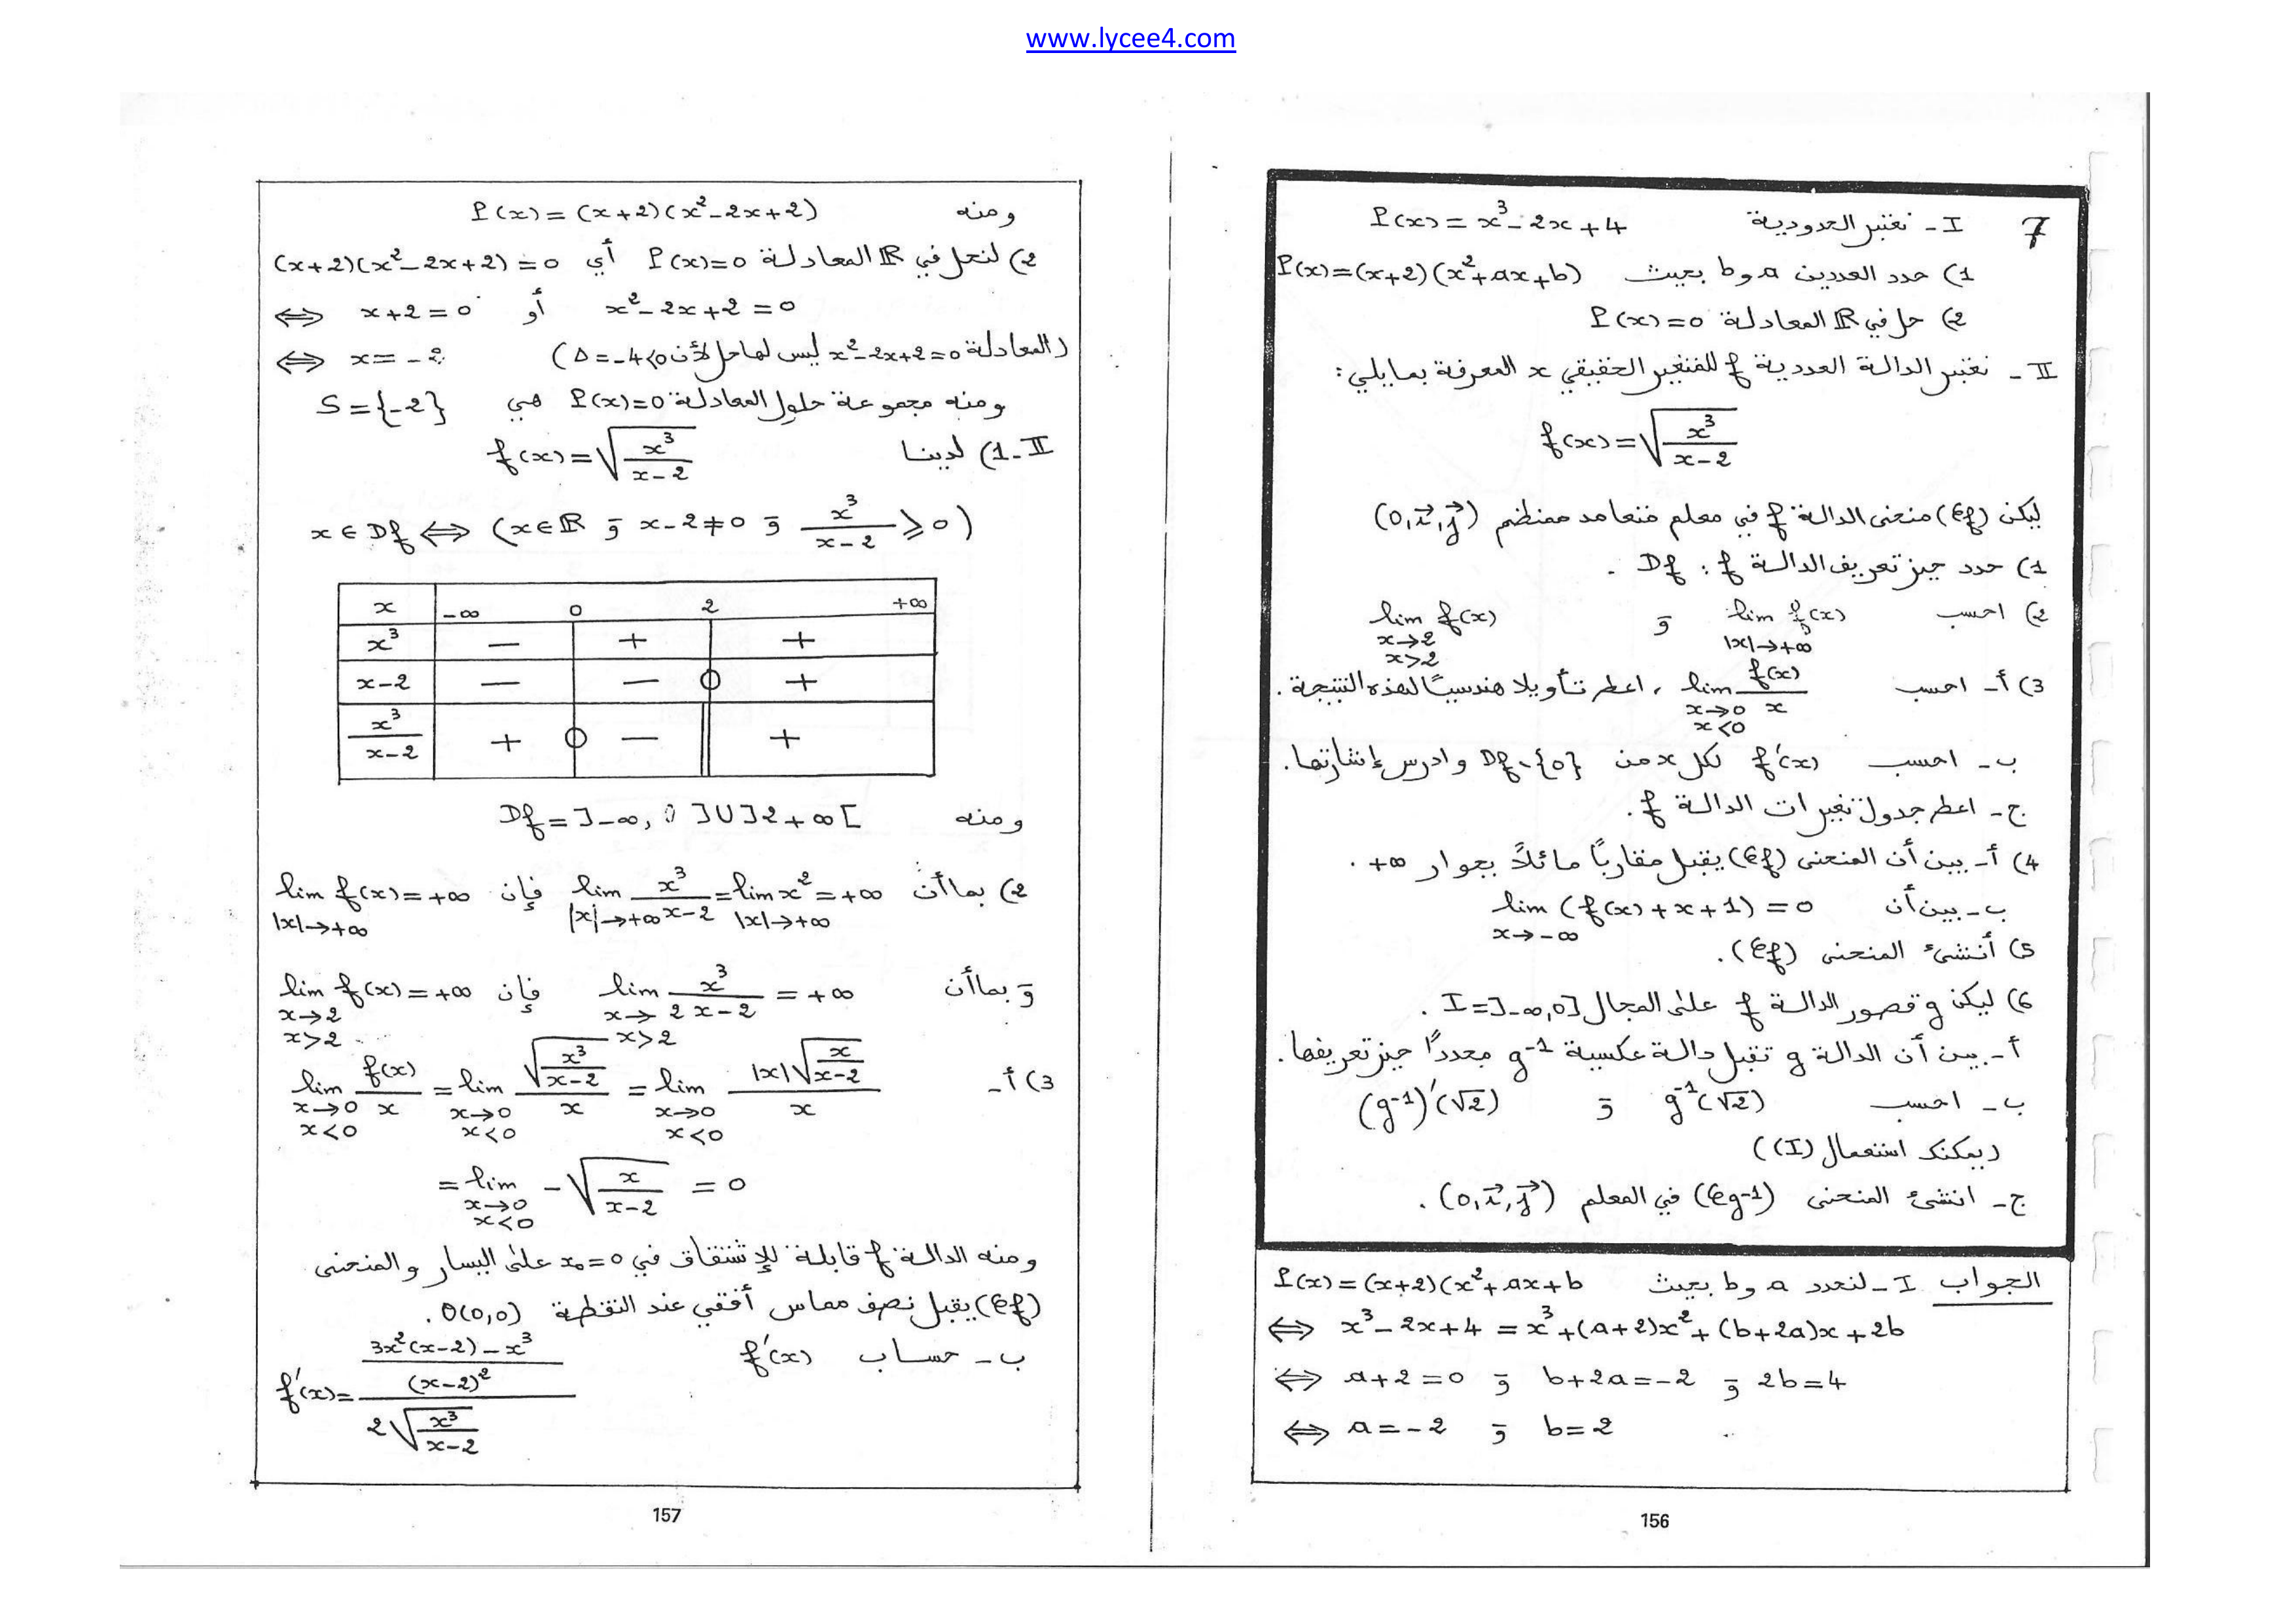 www.lycee4.com
7 I - نعتبر الحدودية P(x) = x³ - 2x + 4
1) حدد العددين a و b بحيث P(x) = (x+2)(x² + ax + b)
2) حل في ℝ المعادلة P(x) = 0
II - نعتبر الدالة العددية f للمتغير الحقيقي x المعرفة بمايلي:
f(x) = √(x³/(x-2))
ليكن (𝒞f) منحنى الدالة f في معلم متعامد ممنظم (O, i⃗, j⃗)
1) حدد حيز تعريف الدالة f : Df .
2) احسب lim f(x) |x|→+∞ و lim f(x) x→2 x>2
3) أ - احسب lim f(x)/x x→0 x<0 ، اعط تأويلا هندسيًا لهذه النتيجة.
ب - احسب f'(x) لكل x من Df \ {0} وادرس إشارتها.
ج - اعط جدول تغيرات الدالة f.
4) أ - بين أن المنحنى (𝒞f) يقبل مقاربًا مائلاً بجوار +∞ .
ب - بين أن lim (f(x) + x + 1) = 0 x→-∞
5) أنشئ المنحنى (𝒞f).
6) ليكن g قصور الدالة f على المجال I = ]-∞, 0] .
أ - بين أن الدالة g تقبل دالة عكسية g⁻¹ محددًا حيز تعريفها.
ب - احسب g⁻¹(√2) و (g⁻¹)'(√2)
(يمكنك استعمال (I))
ج - انشئ المنحنى (𝒞g⁻¹) في المعلم (O, i⃗, j⃗) .
الجواب I - لنحدد a و b بحيث P(x) = (x+2)(x² + ax + b
⟺ x³ - 2x + 4 = x³ + (a+2)x² + (b+2a)x + 2b
⟺ a+2 = 0 و b+2a = -2 و 2b = 4
⟺ a = -2 و b = 2
156
ومنه P(x) = (x+2)(x² - 2x + 2)
2) لنحل في ℝ المعادلة P(x) = 0 أي (x+2)(x² - 2x + 2) = 0
⟺ x+2 = 0 أو x² - 2x + 2 = 0
⟺ x = -2 (المعادلة x² - 2x + 2 = 0 ليس لها حل لأن Δ = -4 < 0)
ومنه مجموعة حلول المعادلة P(x) = 0 هي S = {-2}
II - 1) لدينا f(x) = √(x³/(x-2))
x ∈ Df ⟺ (x ∈ ℝ و x-2 ≠ 0 و x³/(x-2) ≥ 0)
x -∞ 0 2 +∞
x³ - + +
x-2 - - 0 +
x³/(x-2) + 0 - +
ومنه Df = ]-∞, 0 ]U]2 +∞[
2) بما أن lim x³/(x-2) |x|→+∞ = lim x² |x|→+∞ = +∞ فإن lim f(x) = +∞ |x|→+∞
و بما أن lim x³/(x-2) = +∞ x→2 x>2 فإن lim f(x) = +∞ x→2 x>2
3) أ - lim f(x)/x x→0 x<0 = lim √(x³/(x-2))/x x→0 x<0 = lim |x|√(x/(x-2))/x x→0 x<0
= lim -√(x/(x-2)) = 0 x→0 x<0
ومنه الدالة f قابلة للإشتقاق في x₀ = 0 على اليسار والمنحنى
(𝒞f) يقبل نصف مماس أفقي عند النقطة O(0,0).
ب - حساب f'(x)
f'(x) = ((3x²(x-2) - x³)/(x-2)²)/(2√(x³/(x-2)))
157